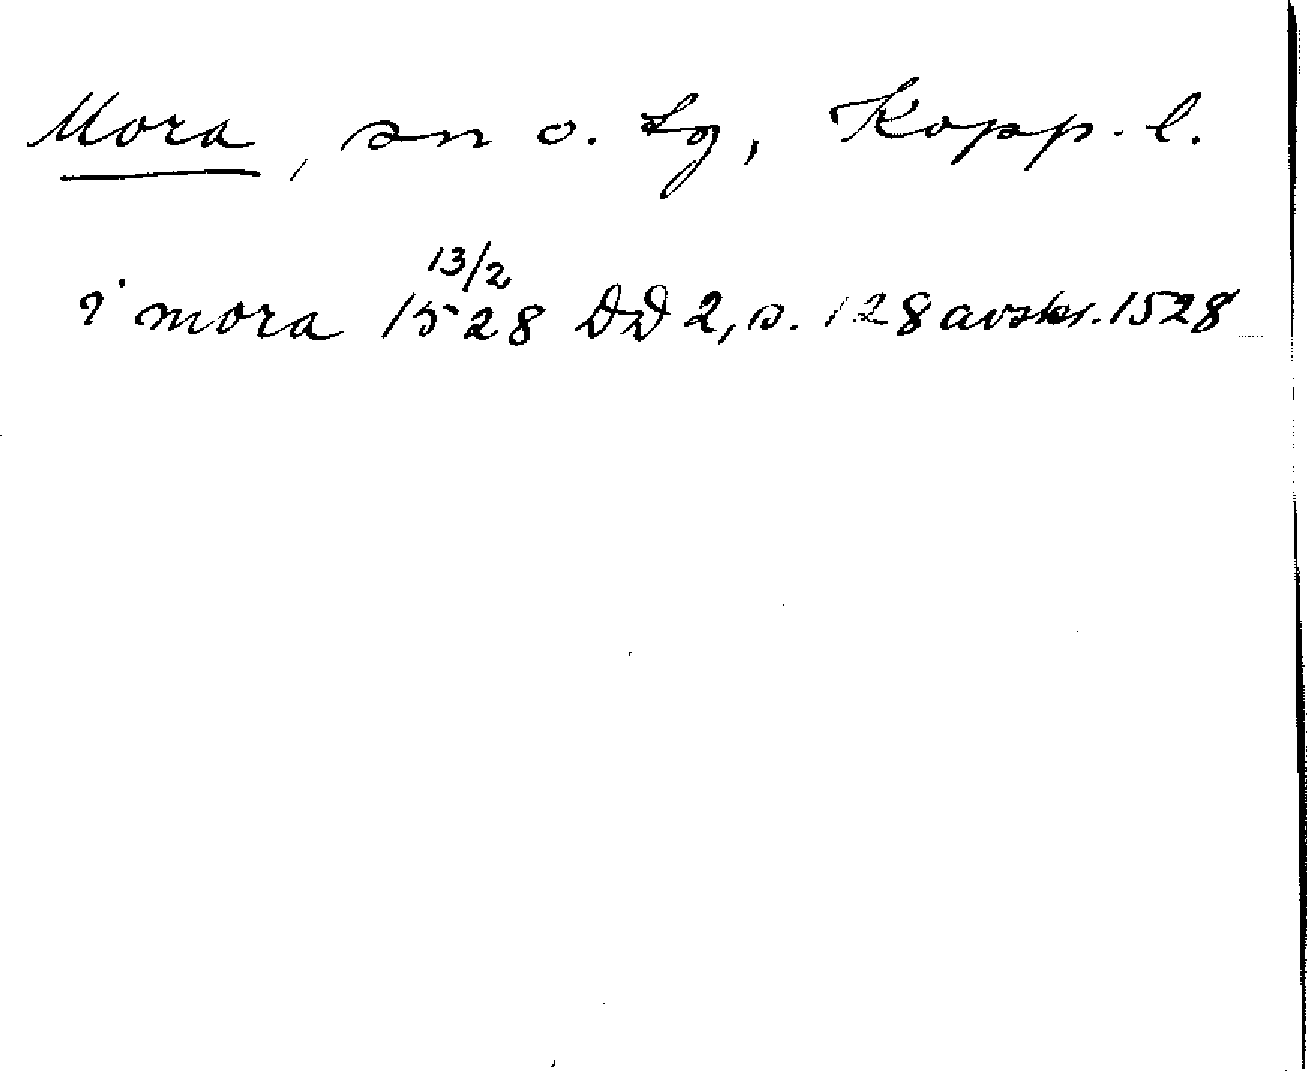 Mora, sn o. tg, Kopp. l.
i mora 13/2 1528 DD 2, s. 128 avskr. 1528